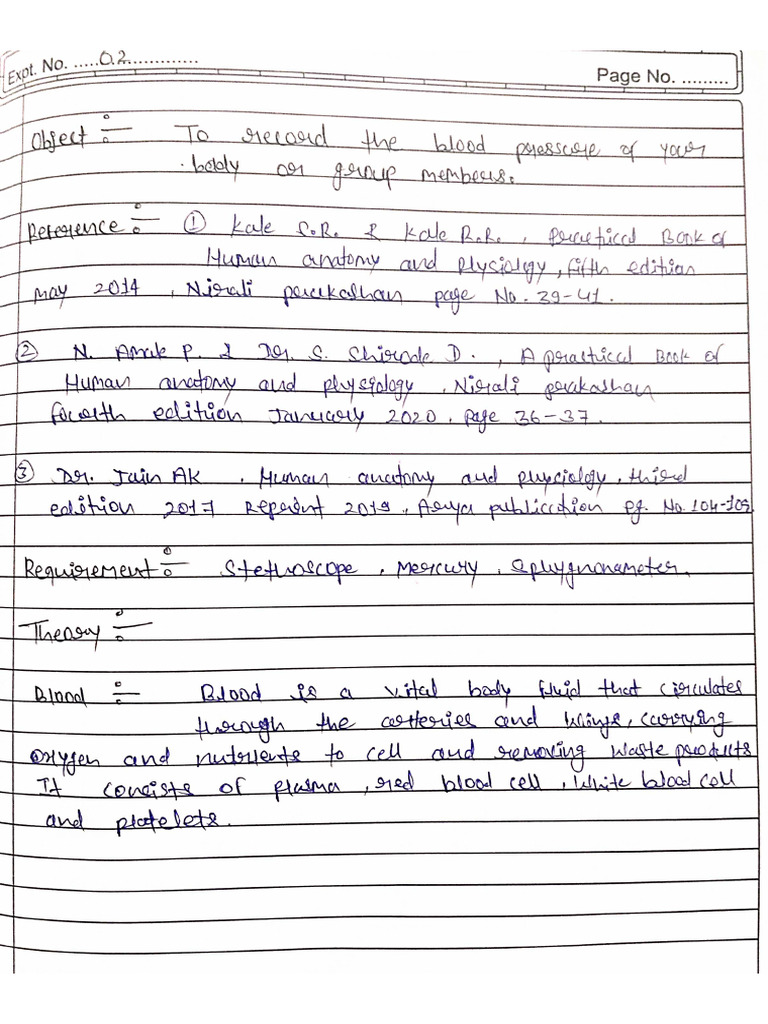 Expt. No. .....02.............
Page No. .........
Object :- To record the blood pressure of your
body or group members.
Reference :- ① Kale S.R. & Kale R.R., practical Book of
Human anatomy and plysiology, fifth edition
may 2014, Nirali perakashan page No. 39-41.
② N. Amale P. & Dr. S. Shirode D., A practical Book of
Human anatomy and physiology, Nirali perakashan
fourth edition January 2020, page 36-37.
③ Dr. Jain AK, Human anatomy and physiology, third
edition 2017 Reprint 2019, Aerya publication Pg. No. 104-109
Requirement :- Stethoscope, Mercury, Sphygnonameter.
Theory :-
Blood :- Blood is a vital body fluid that circulates
through the arteries and , carrying
oxygen and nutrients to cell and removing waste products
It consists of plasma, red blood cell, White blood cell
and platelets.